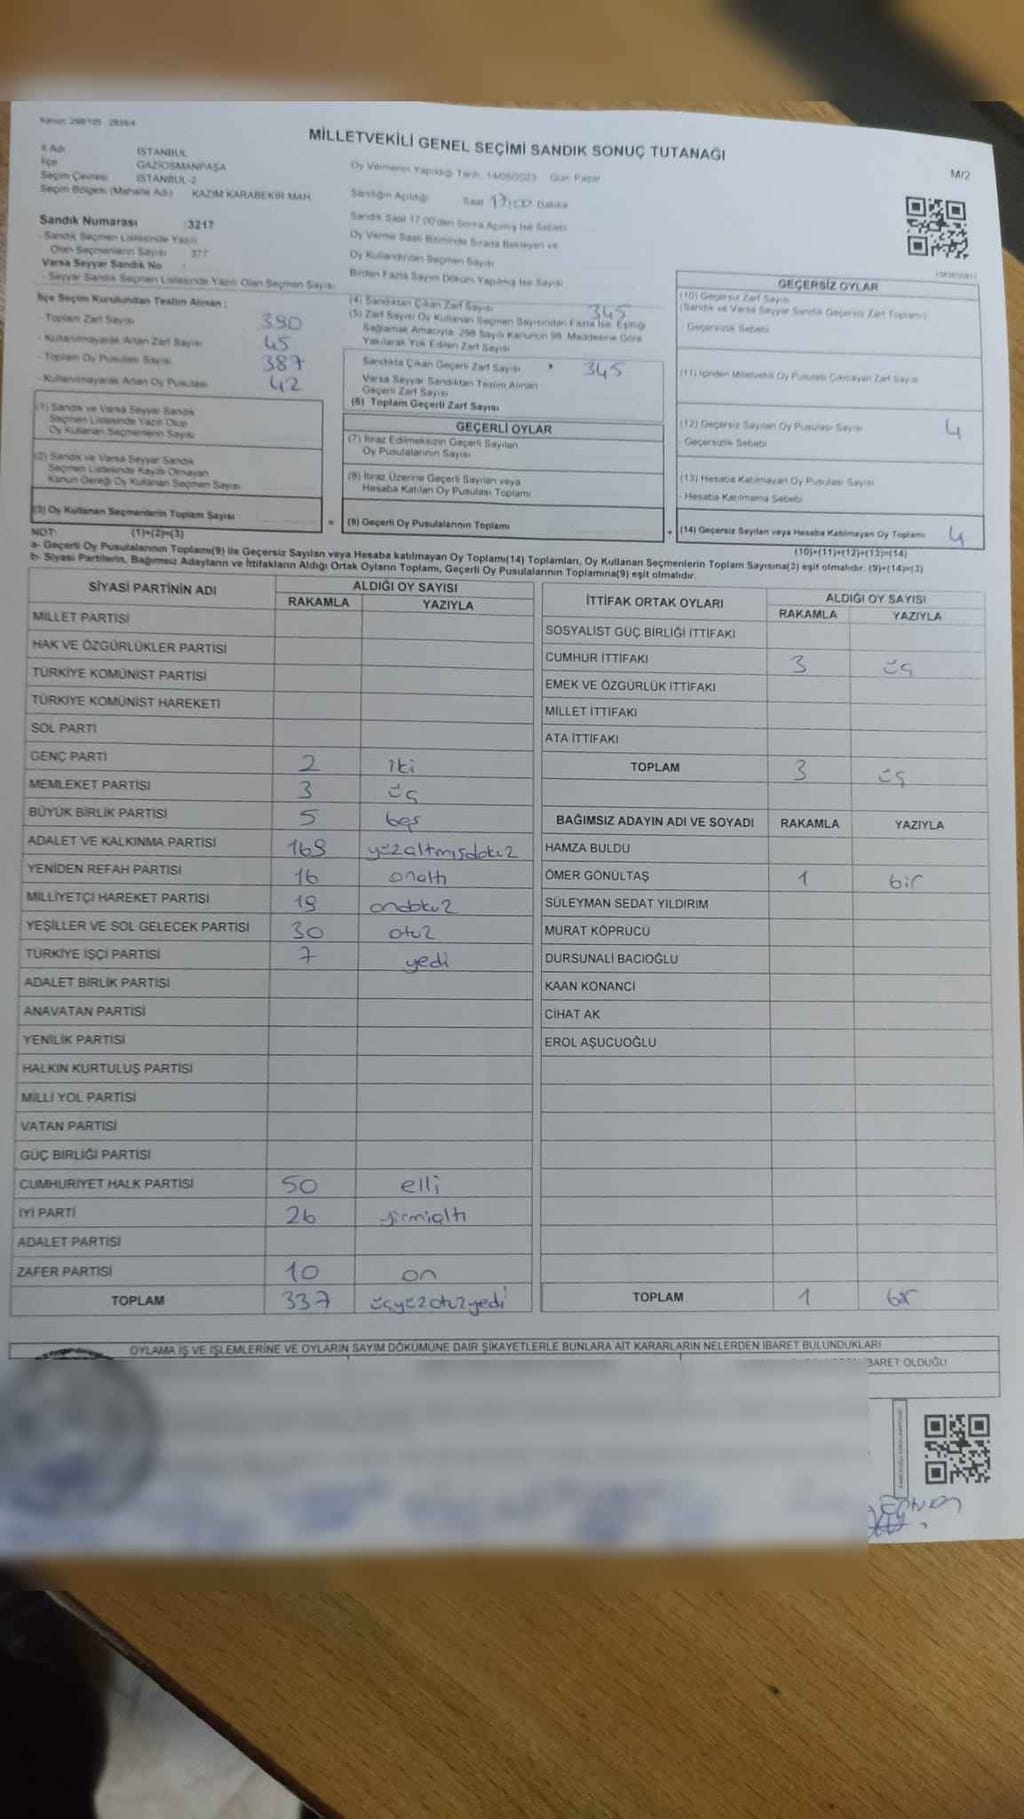 Kanun: 298/105 - 2839/4
MİLLETVEKİLİ GENEL SEÇİMİ SANDIK SONUÇ TUTANAĞI
M/2
İl Adı İSTANBUL
İlçe GAZİOSMANPAŞA
Seçim Çevresi İSTANBUL-2
Seçim Bölgesi (Mahalle Adı) KAZIM KARABEKİR MAH.
Sandık Numarası :3217
- Sandık Seçmen Listesinde Yazılı
Olan Seçmenlerin Sayısı 377
Varsa Seyyar Sandık No
- Seyyar Sandık Seçmen Listesinde Yazılı Olan Seçmen Sayısı
Oy Vermenin Yapıldığı Tarih: 14/05/2023 Gün: Pazar
Sandığın Açıldığı Saat 17:00 Dakika
Sandık Saat 17.00'den Sonra Açılmış İse Sebebi
Oy Verme Saati Bitiminde Sırada Bekleyen ve
Oy Kullandırılan Seçmen Sayısı
Birden Fazla Sayım Döküm Yapılmış İse Sayısı
İlçe Seçim Kurulundan Teslim Alınan :
- Toplam Zarf Sayısı 390
- Kullanılmayarak Artan Zarf Sayısı 45
- Toplam Oy Pusulası Sayısı 387
- Kullanılmayarak Artan Oy Pusulası 42
(1) Sandık ve Varsa Seyyar Sandık
Seçmen Listesinde Yazılı Olup
Oy Kullanan Seçmenlerin Sayısı
(2) Sandık ve Varsa Seyyar Sandık
Seçmen Listesinde Kayıtlı Olmayan
Kanun Gereği Oy Kullanan Seçmen Sayısı
(3) Oy Kullanan Seçmenlerin Toplam Sayısı
(4) Sandıktan Çıkan Zarf Sayısı 345
(5) Zarf Sayısı Oy Kullanan Seçmen Sayısından Fazla İse, Eşitliği
Sağlamak Amacıyla, 298 Sayılı Kanunun 98. Maddesine Göre
Yakılarak Yok Edilen Zarf Sayısı
Sandıkta Çıkan Geçerli Zarf Sayısı 345
Varsa Seyyar Sandıktan Teslim Alınan
Geçerli Zarf Sayısı
(6) Toplam Geçerli Zarf Sayısı
GEÇERLİ OYLAR
(7) İtiraz Edilmeksizin Geçerli Sayılan
Oy Pusulalarının Sayısı
(8) İtiraz Üzerine Geçerli Sayılan veya
Hesaba Katılan Oy Pusulası Toplamı
= (9) Geçerli Oy Pusulalarının Toplamı
GEÇERSİZ OYLAR
(10) Geçersiz Zarf Sayısı
(Sandık ve Varsa Seyyar Sandık Geçersiz Zarf Toplamı)
- Geçersizlik Sebebi
(11) İçinden Milletvekili Oy Pusulası Çıkmayan Zarf Sayısı
(12) Geçersiz Sayılan Oy Pusulası Sayısı 4
- Geçersizlik Sebebi
(13) Hesaba Katılmayan Oy Pusulası Sayısı
- Hesaba Katılmama Sebebi
+ (14) Geçersiz Sayılan veya Hesaba Katılmayan Oy Toplamı 4
NOT: (1)+(2)=(3) (10)+(11)+(12)+(13)=(14)
a- Geçerli Oy Pusulalarının Toplamı(9) ile Geçersiz Sayılan veya Hesaba katılmayan Oy Toplamı(14) Toplamları, Oy Kullanan Seçmenlerin Toplam Sayısına(3) eşit olmalıdır. (9)+(14)=(3)
b- Siyasi Partilerin, Bağımsız Adayların ve İttifakların Aldığı Ortak Oyların Toplamı, Geçerli Oy Pusulalarının Toplamına(9) eşit olmalıdır.
SİYASİ PARTİNİN ADI ALDIĞI OY SAYISI
RAKAMLA YAZIYLA
MİLLET PARTİSİ
HAK VE ÖZGÜRLÜKLER PARTİSİ
TÜRKİYE KOMÜNİST PARTİSİ
TÜRKİYE KOMÜNİST HAREKETİ
SOL PARTİ
GENÇ PARTİ 2 iki
MEMLEKET PARTİSİ 3 üç
BÜYÜK BİRLİK PARTİSİ 5 beş
ADALET VE KALKINMA PARTİSİ 169 yüzaltmışdokuz
YENİDEN REFAH PARTİSİ 16 onaltı
MİLLİYETÇİ HAREKET PARTİSİ 19 ondokuz
YEŞİLLER VE SOL GELECEK PARTİSİ 30 otuz
TÜRKİYE İŞÇİ PARTİSİ 7 yedi
ADALET BİRLİK PARTİSİ
ANAVATAN PARTİSİ
YENİLİK PARTİSİ
HALKIN KURTULUŞ PARTİSİ
MİLLİ YOL PARTİSİ
VATAN PARTİSİ
GÜÇ BİRLİĞİ PARTİSİ
CUMHURİYET HALK PARTİSİ 50 elli
İYİ PARTİ 26 yirmialtı
ADALET PARTİSİ
ZAFER PARTİSİ 10 on
TOPLAM 337 üçyüzotuzyedi
İTTİFAK ORTAK OYLARI ALDIĞI OY SAYISI
RAKAMLA YAZIYLA
SOSYALİST GÜÇ BİRLİĞİ İTTİFAKI
CUMHUR İTTİFAKI 3 üç
EMEK VE ÖZGÜRLÜK İTTİFAKI
MİLLET İTTİFAKI
ATA İTTİFAKI
TOPLAM 3 üç
BAĞIMSIZ ADAYIN ADI VE SOYADI RAKAMLA YAZIYLA
HAMZA BULDU
ÖMER GÖNÜLTAŞ 1 bir
SÜLEYMAN SEDAT YILDIRIM
MURAT KÖPRÜCÜ
DURSUNALİ BACIOĞLU
KAAN KONANCİ
CİHAT AK
EROL AŞUCUOĞLU
TOPLAM 1 bir
OYLAMA İŞ VE İŞLEMLERİNE VE OYLARIN SAYIM DÖKÜMÜNE DAİR ŞİKAYETLERLE BUNLARA AİT KARARLARIN NELERDEN İBARET BULUNDUKLARI
İBARET OLDUĞU